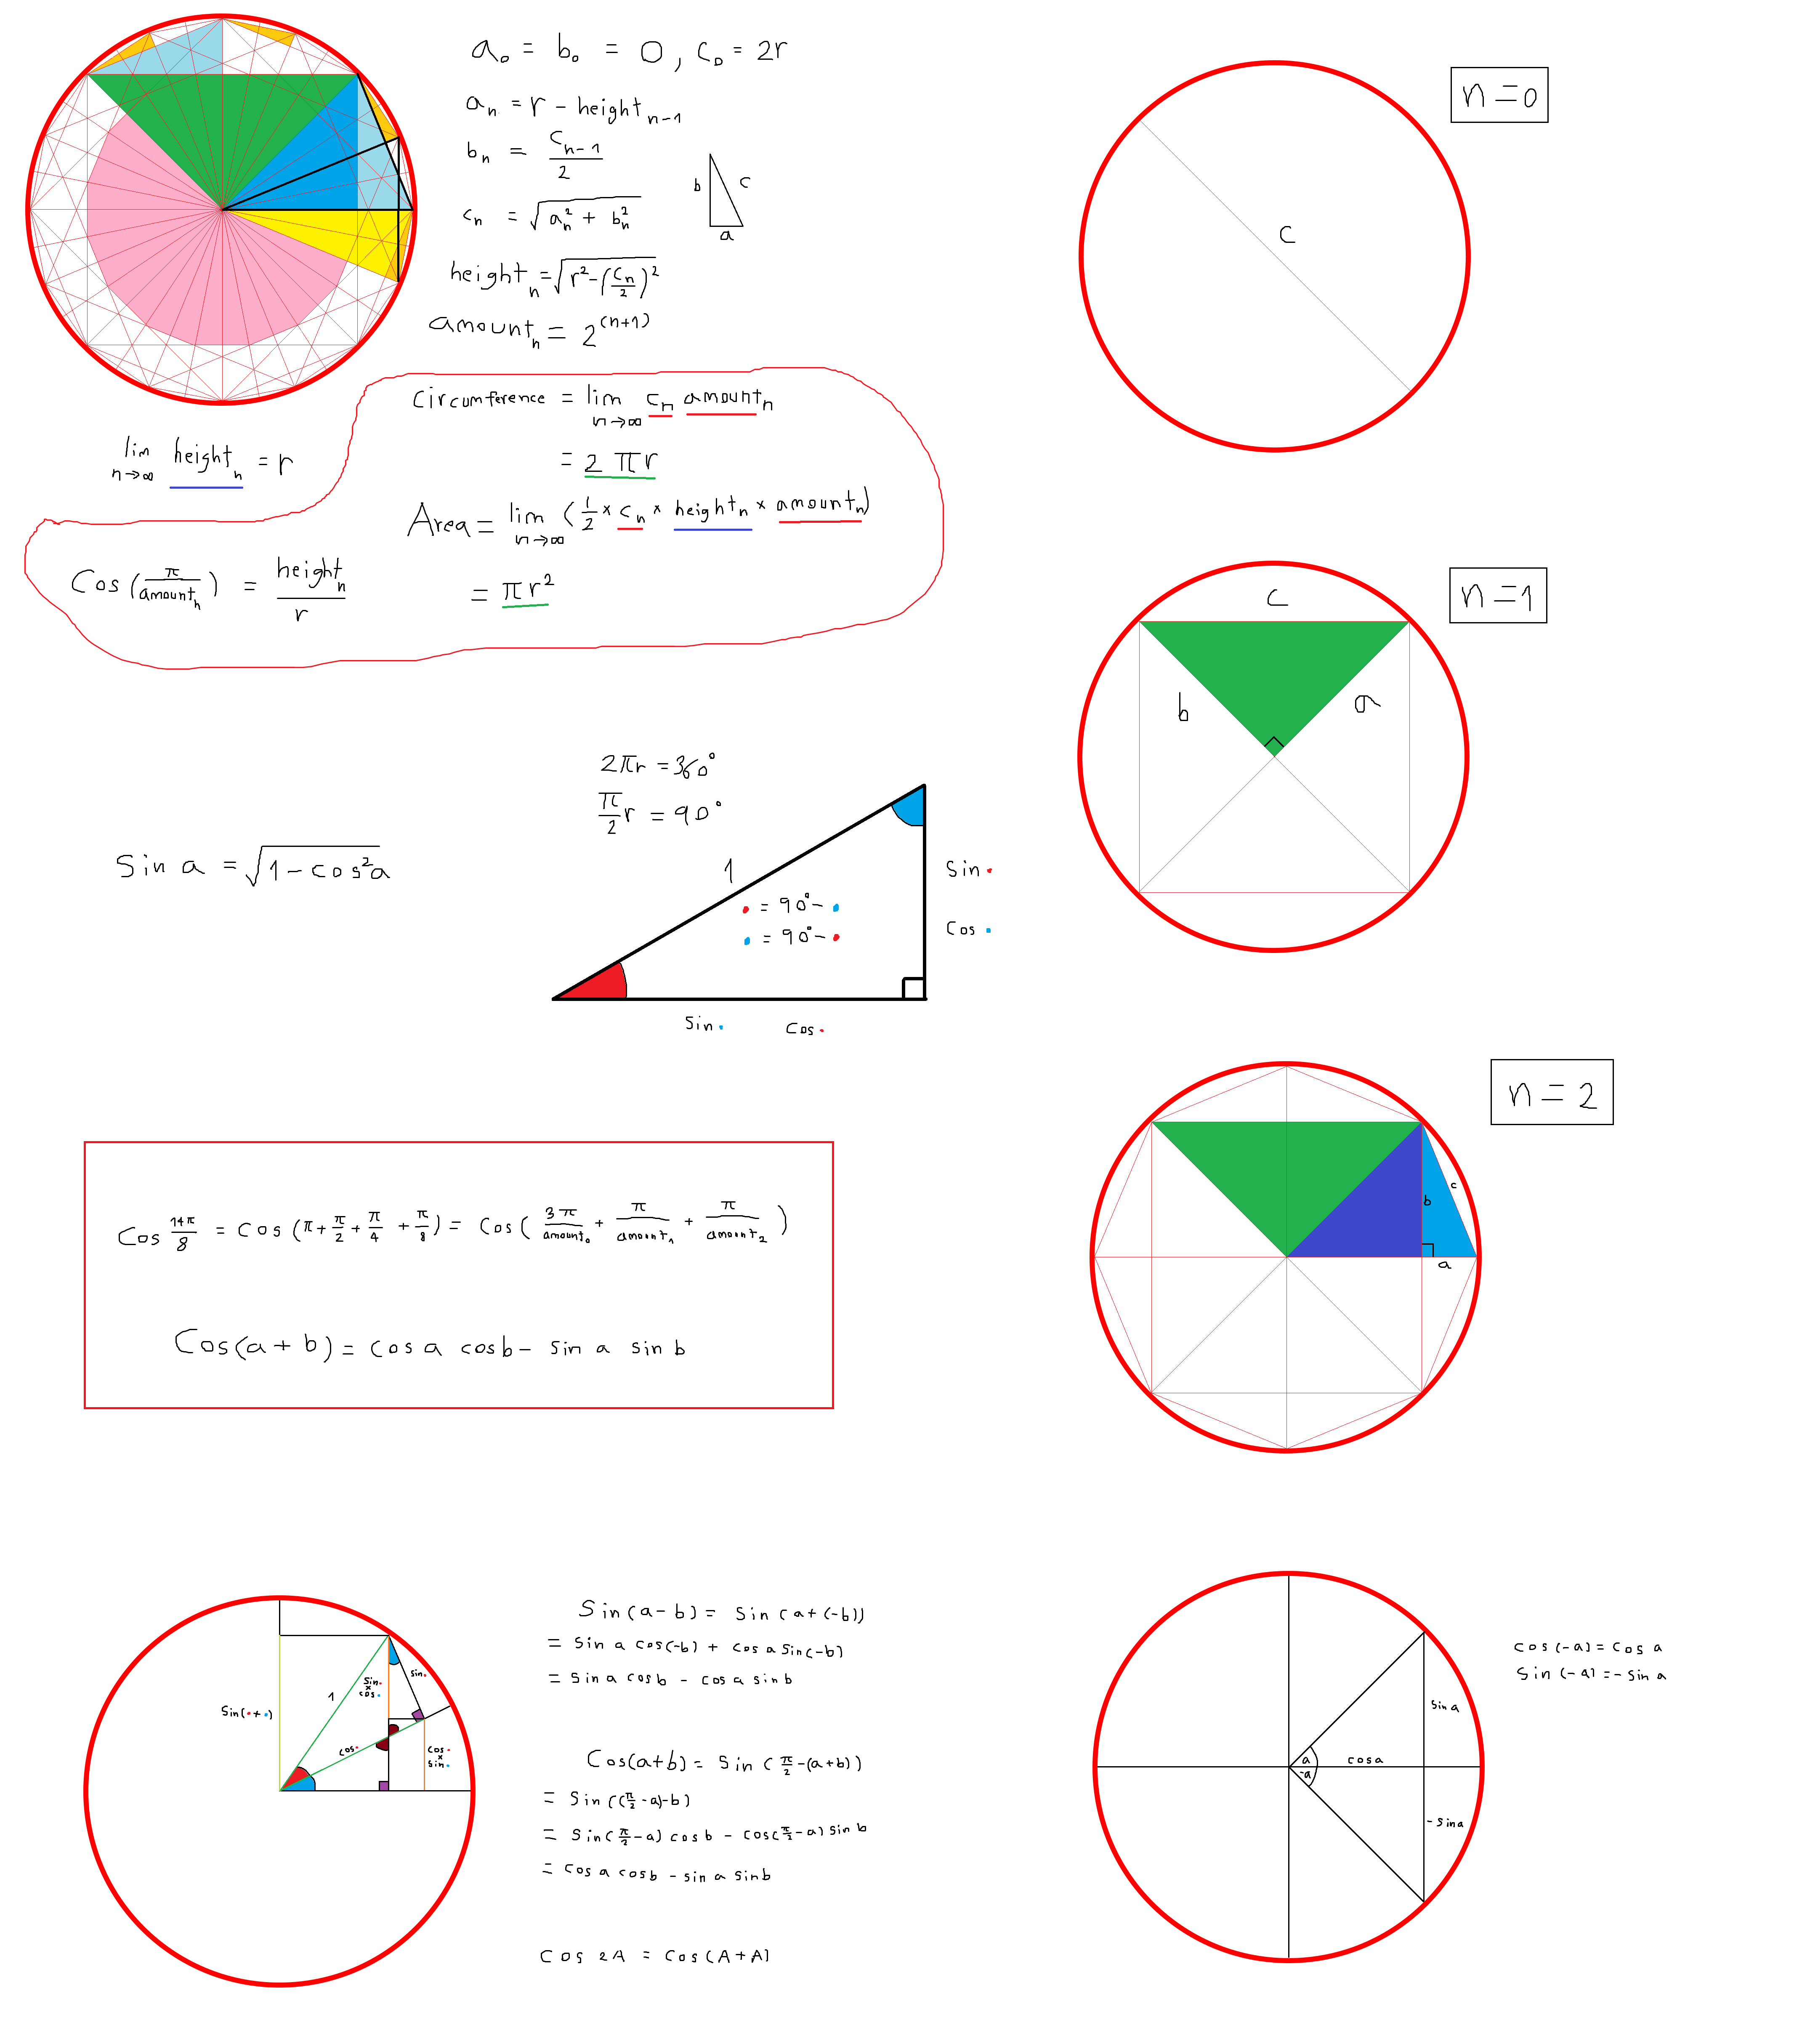 a₀ = b₀ = 0, c₀ = 2r
aₙ = r − heightₙ₋₁
bₙ = cₙ₋₁/2
cₙ = √(aₙ² + bₙ²)
b c
a
heightₙ = √(r² − (cₙ/2)²)
amountₙ = 2⁽ⁿ⁺¹⁾
Circumference = lim n→∞ cₙ amountₙ
= 2πr
lim n→∞ heightₙ = r
Area = lim n→∞ (1/2 × cₙ × heightₙ × amountₙ)
= πr²
Cos(π/amountₙ) = heightₙ/r
n = 0
c
n = 1
c
b a
2πr = 360°
π/2 r = 90°
Sin a = √(1 − cos²a)
1
• = 90° − •
• = 90° − •
Sin •
Cos •
Sin • Cos •
n = 2
b c
a
Cos 14π/8 = Cos(π + π/2 + π/4 + π/8) = Cos(3π/amount₀ + π/amount₁ + π/amount₂)
Cos(a + b) = cos a cos b − sin a sin b
Sin(• + •)
1
Sin • × cos •
sin •
cos •
cos • × sin •
Sin(a − b) = Sin(a + (−b))
= sin a cos(−b) + cos a sin(−b)
= sin a cos b − cos a sin b
Cos(a+b) = Sin(π/2 − (a+b))
= Sin((π/2 − a) − b)
= Sin(π/2 − a) cos b − cos(π/2 − a) sin b
= cos a cos b − sin a sin b
Cos 2A = Cos(A + A)
cos(−a) = cos a
Sin(−a) = −sin a
Sin a
a
cos a
−a
−sin a